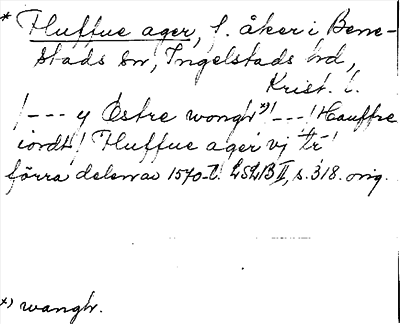 * Huffue ager, f. åker i Bene-
stads sn, Ingelstads hd,
Krist. l.
/--- y Østre wongh *)/---/ Hauffre
iordt/ Huffue ager vj tr/
förra delen av 1570-t. LSLB II, s. 318. orig.
*) wangh.